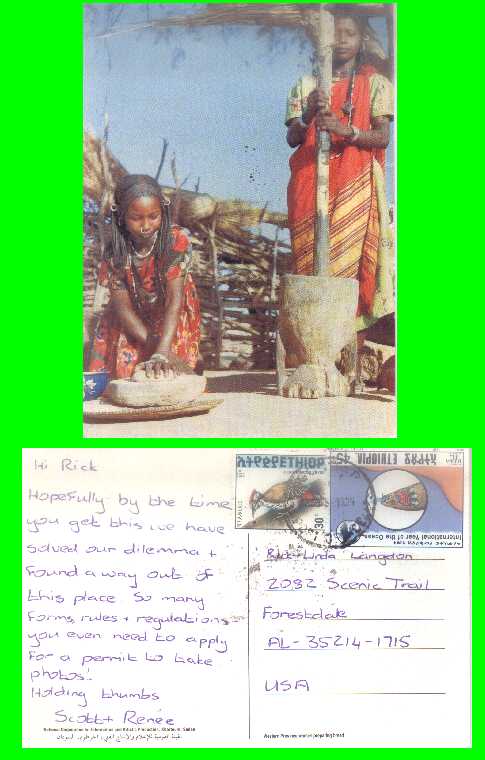 Hi Rick
Hopefully by the time
you get this ive have
solved our dilemma +
found a way out of
this place So many
forms, rules + regulations-
you even need to apply
for a permit to take
photos!
Holding thumbs
Scott + Renée
ETHIOPIA
30
ETHIOPIA
45
International Year of the Ocean
Rick + Linda Langdon
2032 Scenic Trail
Forestdale
AL - 35214-1715
USA
Western Province women preparing bread